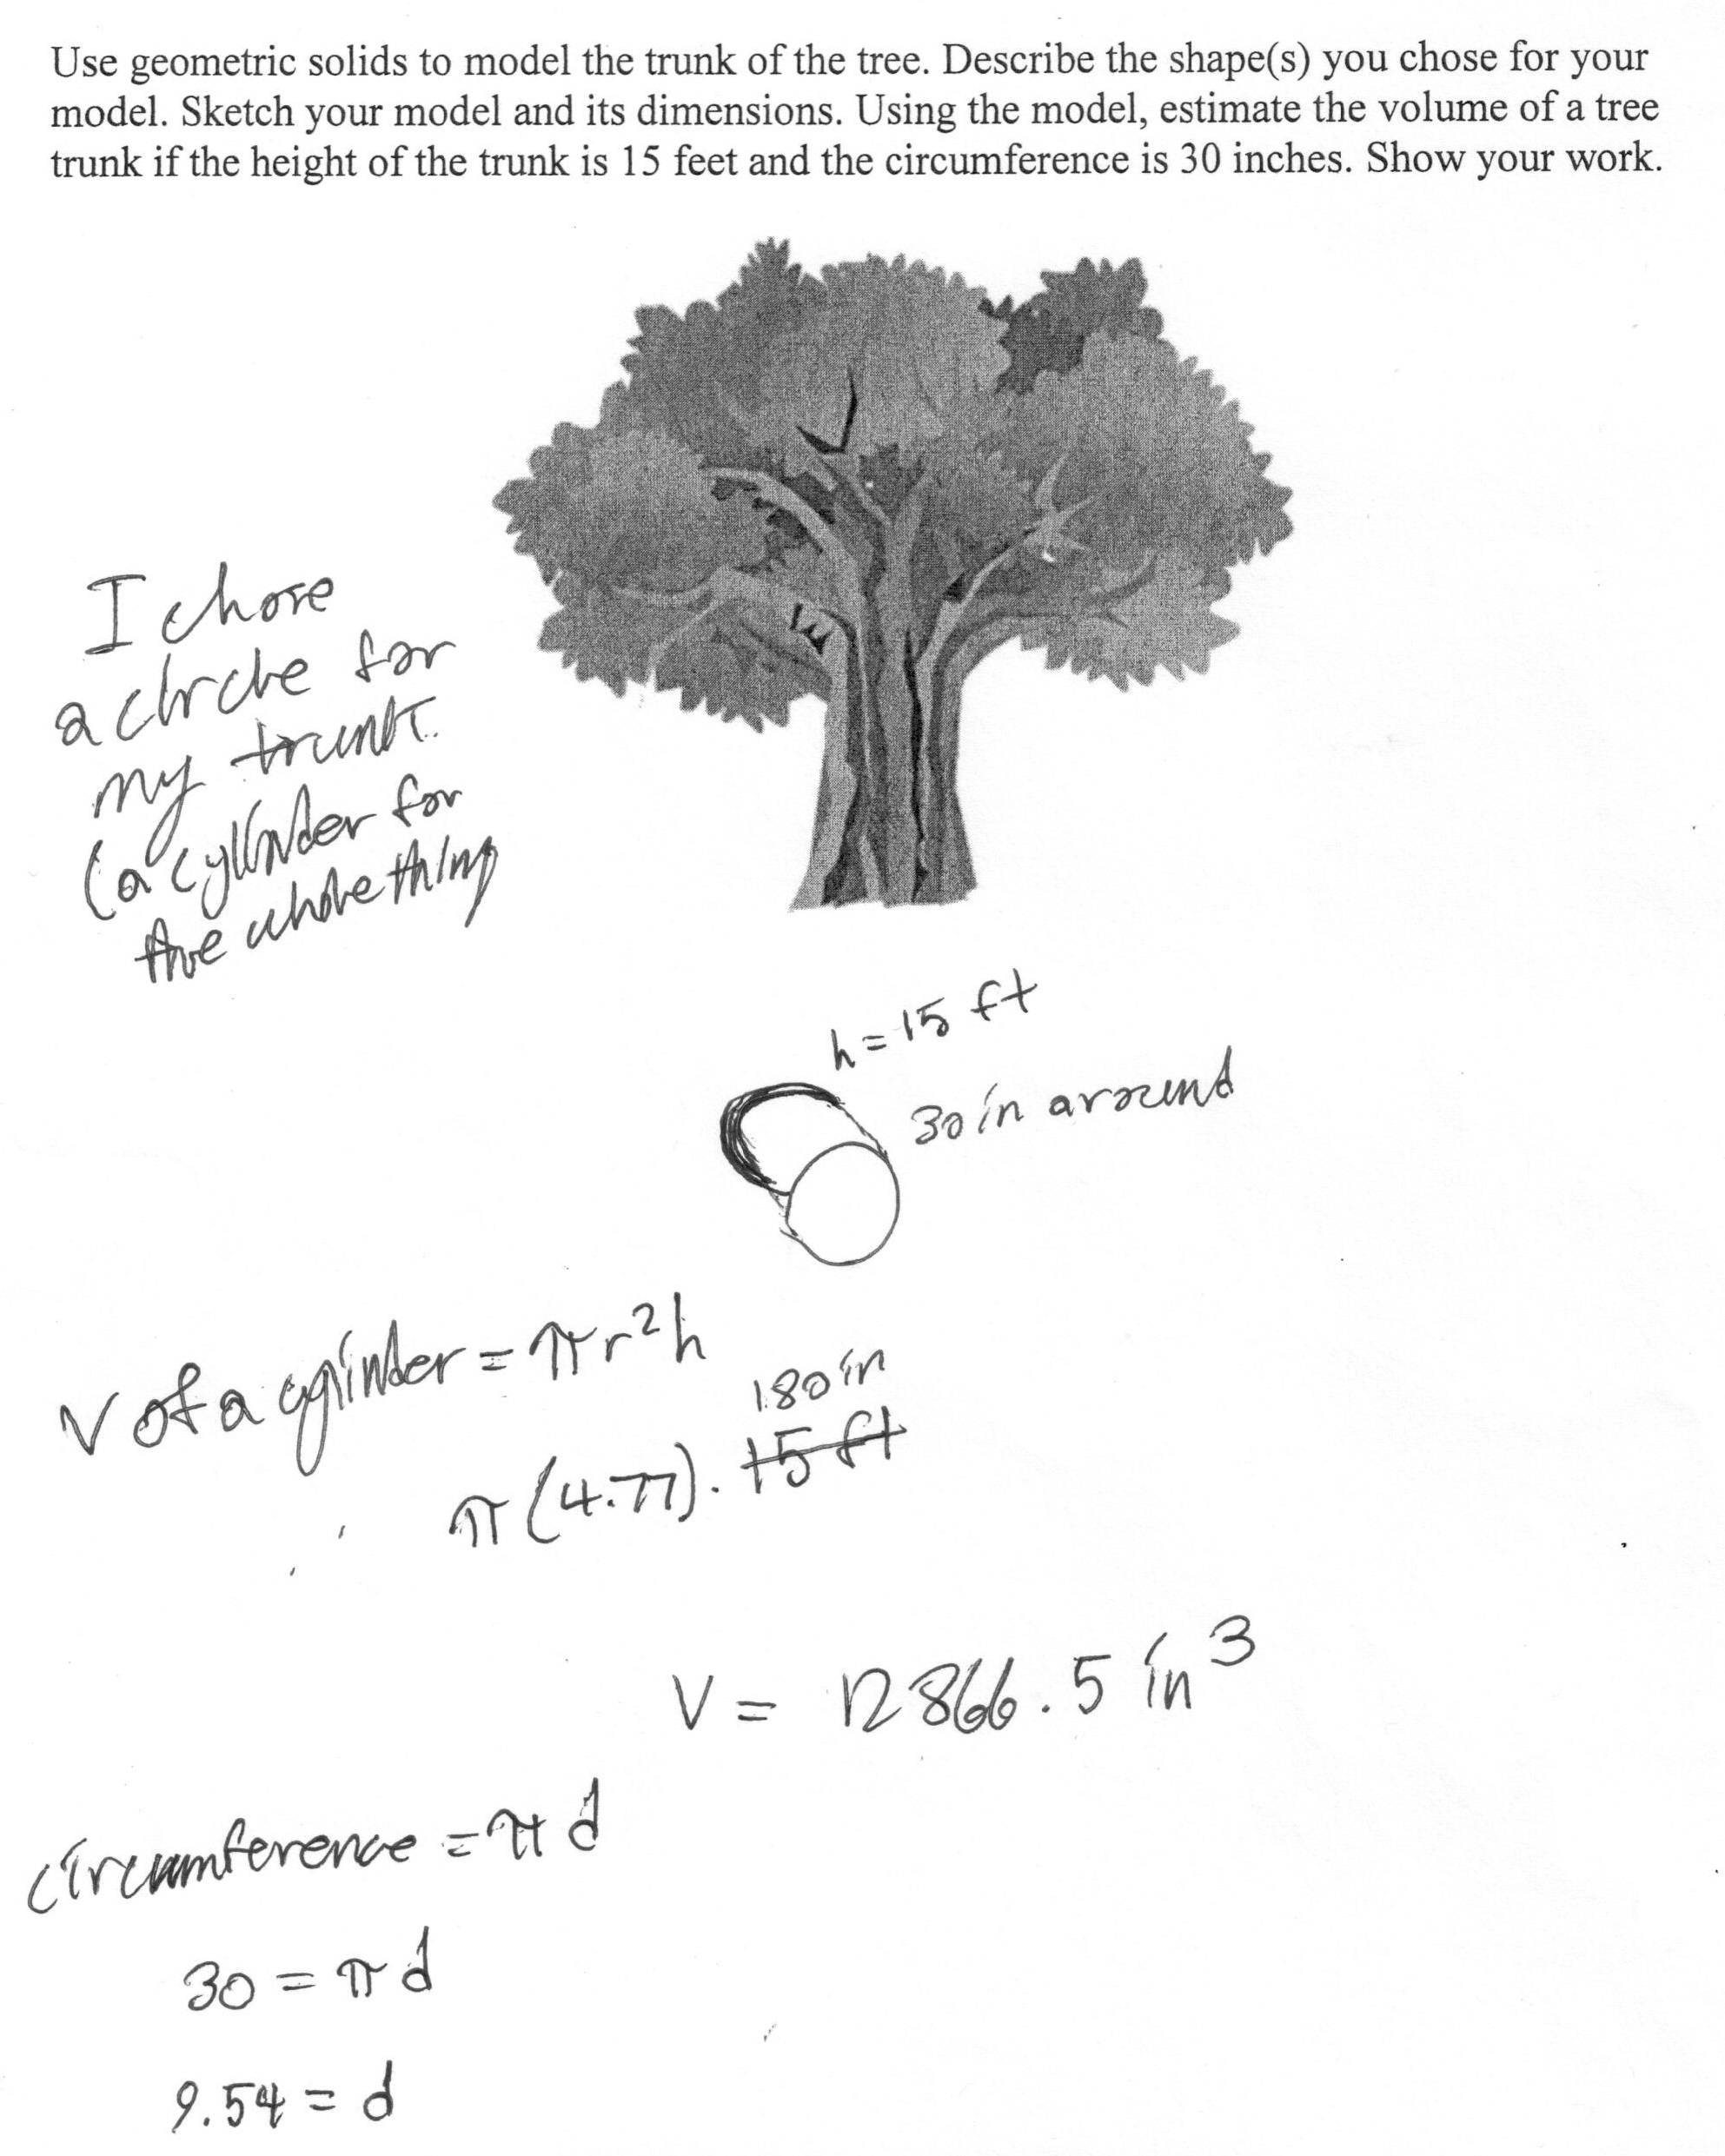 Use geometric solids to model the trunk of the tree. Describe the shape(s) you chose for your
model. Sketch your model and its dimensions. Using the model, estimate the volume of a tree
trunk if the height of the trunk is 15 feet and the circumference is 30 inches. Show your work.
I chose
a circle for
my trunk.
(a cylinder for
the whole thing
h = 15 ft
30 in around
V of a cylinder = πr²h
180 in
π (4.77) · 15 ft
V = 12866.5 in³
circumference = π d
30 = π d
9.54 = d